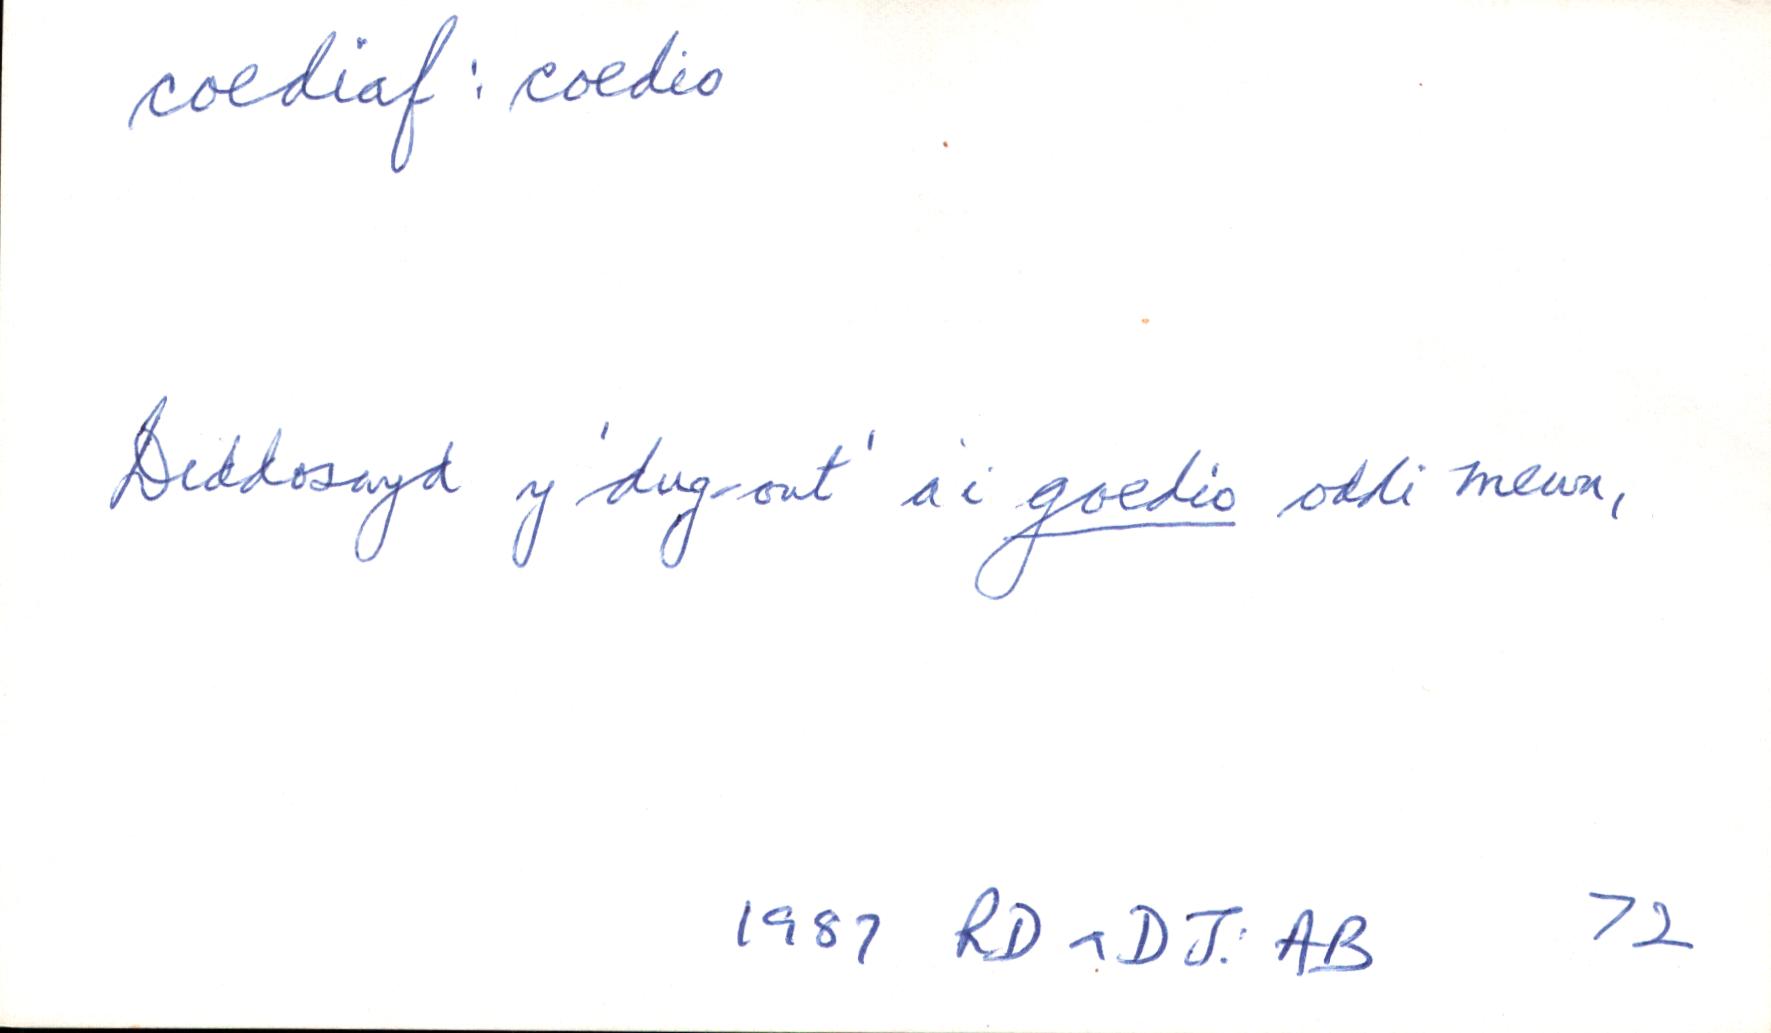 coediaf : coedio
Diddoswyd y 'dug-out' a'i goedio oddi mewn,
1987 RD a DJ: AB 72